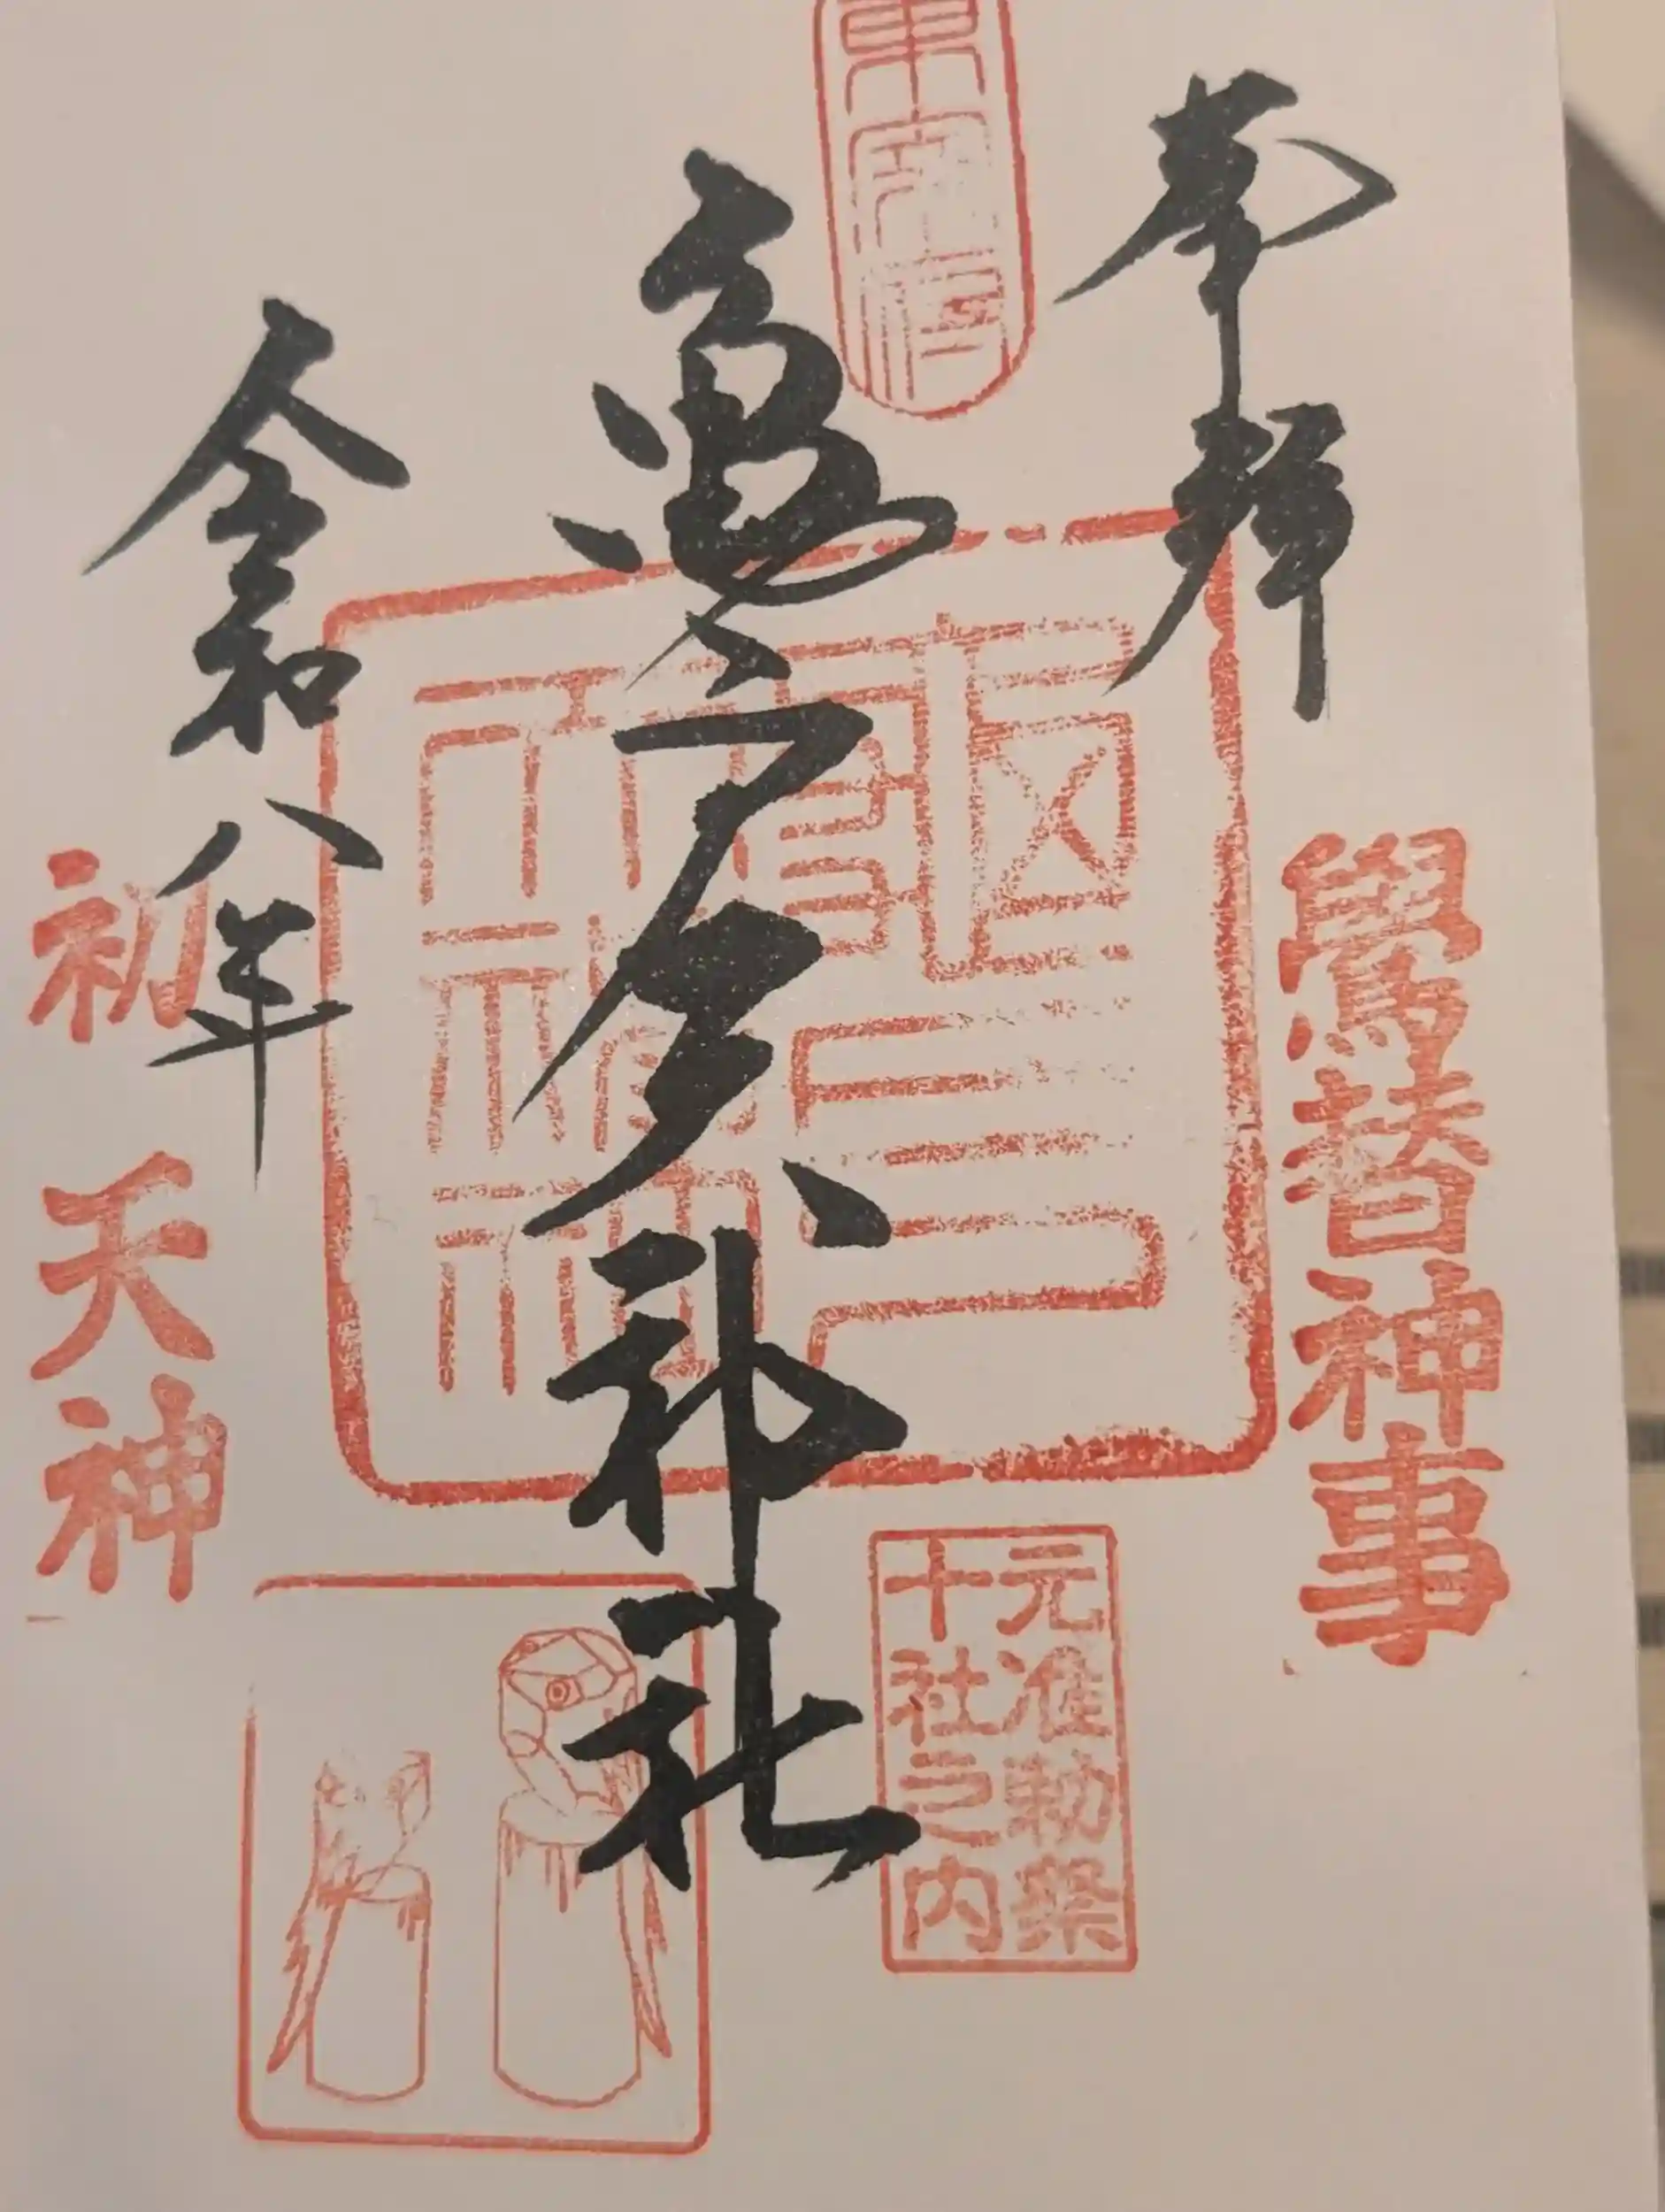 奉拝
鷽替神事
東宰府
龜戸天神社
元准勅祭
十社之内
令和八年
初天神